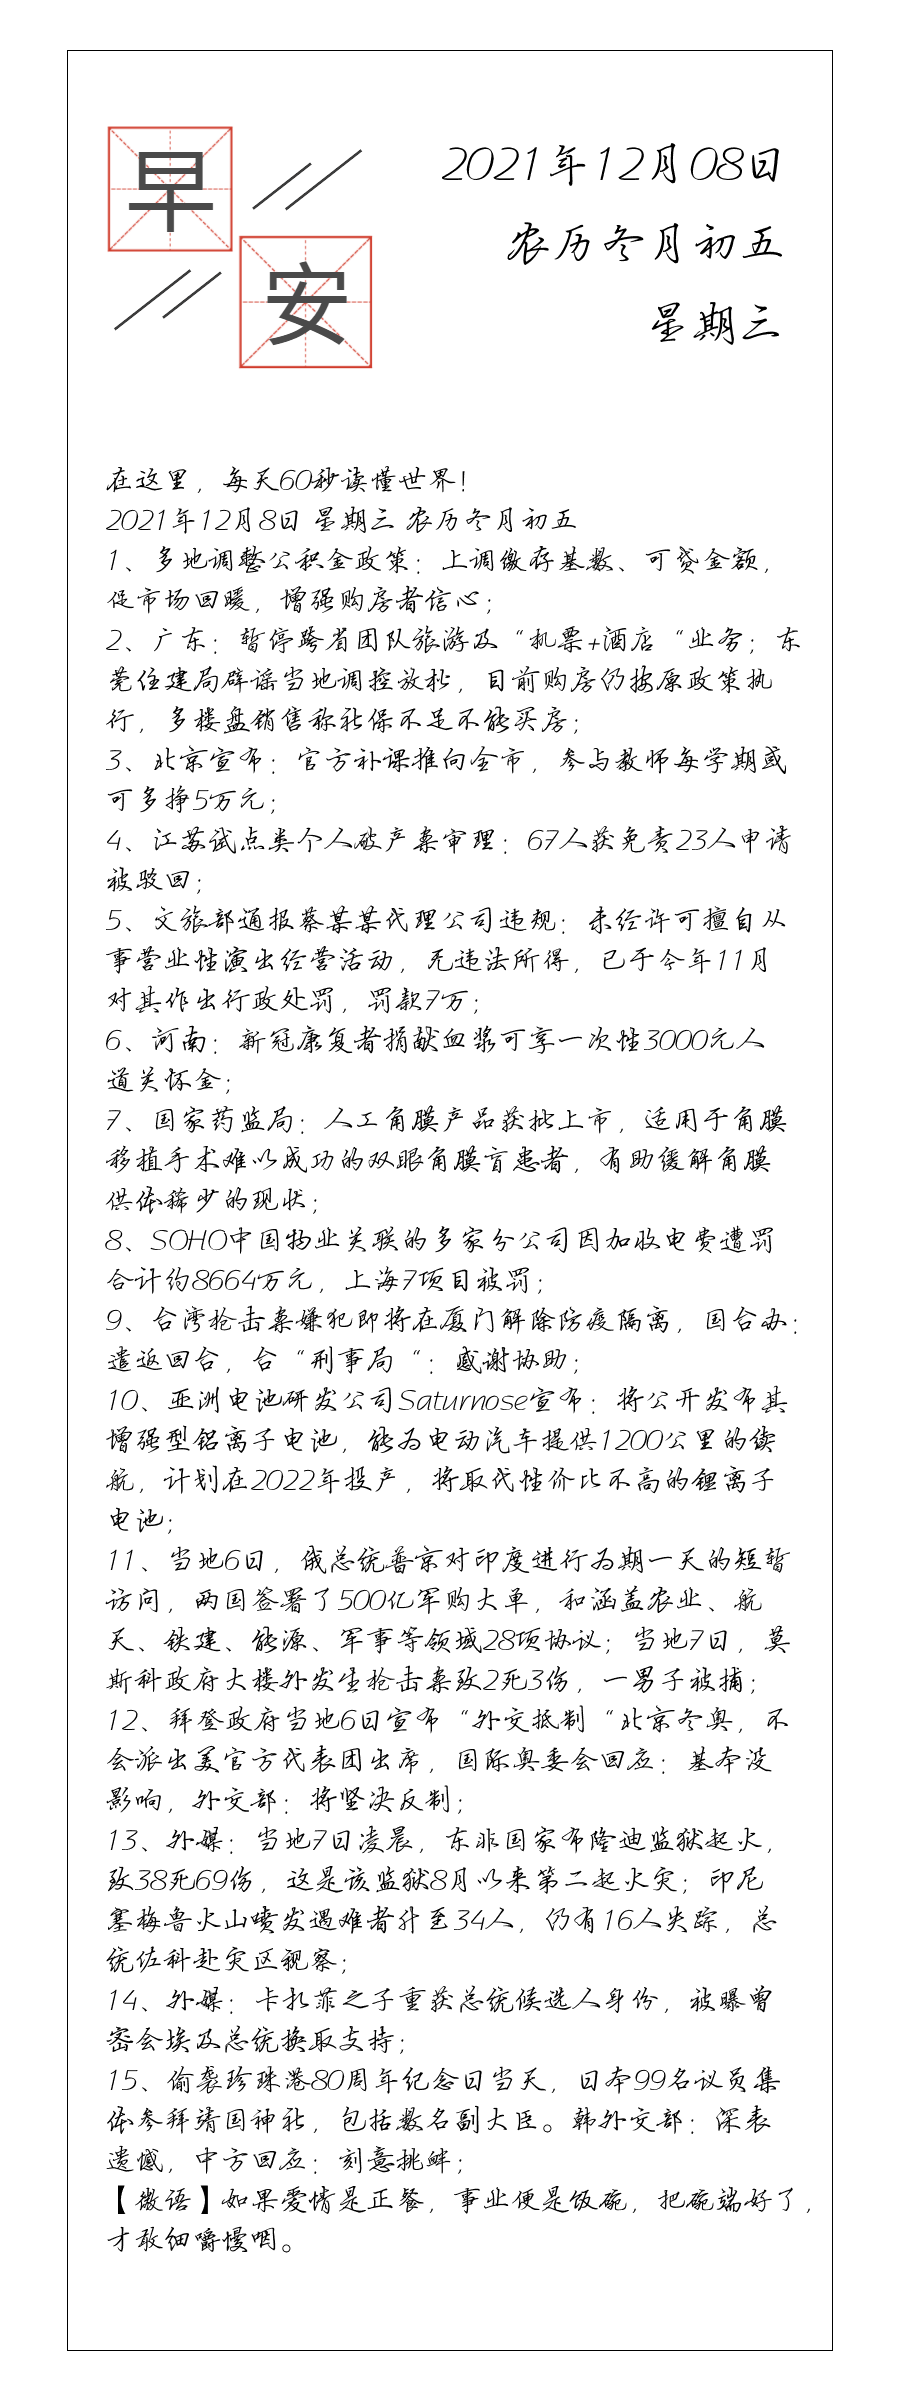 早
安
2021年12月08日
农历冬月初五
星期三
在这里，每天60秒读懂世界！
2021年12月8日 星期三 农历冬月初五
1、多地调整公积金政策：上调缴存基数、可贷金额，
促市场回暖，增强购房者信心；
2、广东：暂停跨省团队旅游及“机票+酒店“业务；东
莞住建局辟谣当地调控放松，目前购房仍按原政策执
行，多楼盘销售称社保不足不能买房；
3、北京宣布：官方补课推向全市，参与教师每学期或
可多挣5万元；
4、江苏试点类个人破产案审理：67人获免责23人申请
被驳回；
5、文旅部通报蔡某某代理公司违规：未经许可擅自从
事营业性演出经营活动，无违法所得，已于今年11月
对其作出行政处罚，罚款7万；
6、河南：新冠康复者捐献血浆可享一次性3000元人
道关怀金；
7、国家药监局：人工角膜产品获批上市，适用于角膜
移植手术难以成功的双眼角膜盲患者，有助缓解角膜
供体稀少的现状；
8、SOHO中国物业关联的多家分公司因加收电费遭罚
合计约8664万元，上海7项目被罚；
9、台湾枪击案嫌犯即将在厦门解除防疫隔离，国台办：
遣返回台，台“刑事局“：感谢协助；
10、亚洲电池研发公司Saturnose宣布：将公开发布其
增强型铝离子电池，能为电动汽车提供1200公里的续
航，计划在2022年投产，将取代性价比不高的锂离子
电池；
11、当地6日，俄总统普京对印度进行为期一天的短暂
访问，两国签署了500亿军购大单，和涵盖农业、航
天、铁建、能源、军事等领域28项协议；当地7日，莫
斯科政府大楼外发生枪击案致2死3伤，一男子被捕；
12、拜登政府当地6日宣布“外交抵制“北京冬奥，不
会派出美官方代表团出席，国际奥委会回应：基本没
影响，外交部：将坚决反制；
13、外媒：当地7日凌晨，东非国家布隆迪监狱起火，
致38死69伤，这是该监狱8月以来第二起火灾；印尼
塞梅鲁火山喷发遇难者升至34人，仍有16人失踪，总
统佐科赴灾区视察；
14、外媒：卡扎菲之子重获总统候选人身份，被曝曾
密会埃及总统换取支持；
15、偷袭珍珠港80周年纪念日当天，日本99名议员集
体参拜靖国神社，包括数名副大臣。韩外交部：深表
遗憾，中方回应：刻意挑衅；
【微语】如果爱情是正餐，事业便是饭碗，把碗端好了，
才敢细嚼慢咽。